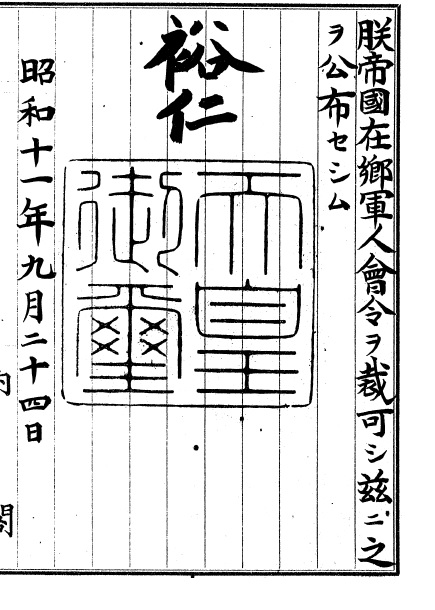 朕帝國在鄉軍人會令ヲ裁可シ茲ニ之
ヲ公布セシム
裕仁
天皇
御璽
昭和十一年九月二十四日
內閣